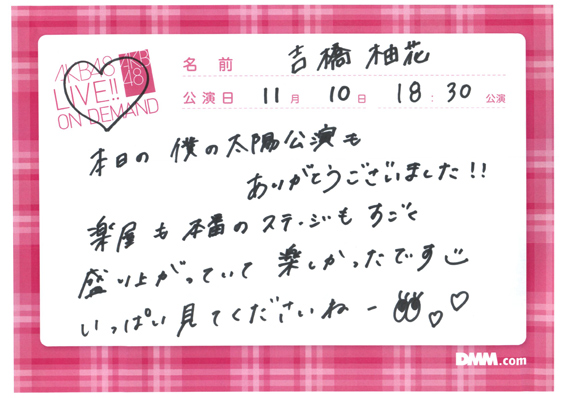 AKB48
LIVE!!
ON DEMAND
AKB
48
名前 吉橋柚花
公演日 11月 10日 18:30公演
本日の僕の太陽公演も
ありがとうございました!!
楽屋も本番のステージもすごく
盛り上がっていて楽しかったです
いっぱい見てくださいねー
DMM.com